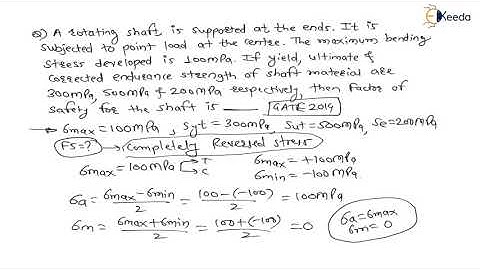 Ekeeda
Q) A rotating shaft is supported at the ends. It is
subjected to point load at the centre. The maximum bending
stress developed is 100mPa. If yield, ultimate &
corrected endurance strength of shaft material are
300mPa, 500mPa & 200mPa respectively, then Factor of
safety for the shaft is ___ GATE 2019
→ σmax = 100mPa, Syt = 300mPa, Sut = 500mPa, Se = 200mPa
FS = ? → Completely Reversed stress
σmax = 100mPa T C σmax = +100mPa
σmin = -100mPa
σa = σmax - σmin / 2 = 100 - (-100) / 2 = 100mPa
σm = σmax + σmin / 2 = 100 + (-100) / 2 = 0
σa = σmax
σm = 0